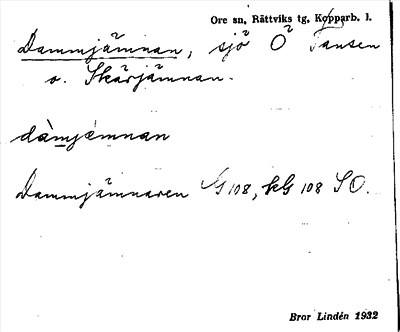 Ore sn, Rättviks tg, Kopparb. l.
Dammjämnan, sjö Ö Tansen
o. Skärjämnan.
dàmjæmnan
Dammjämnaren GG 108, kG 108 SO.
Bror Lindén 1932